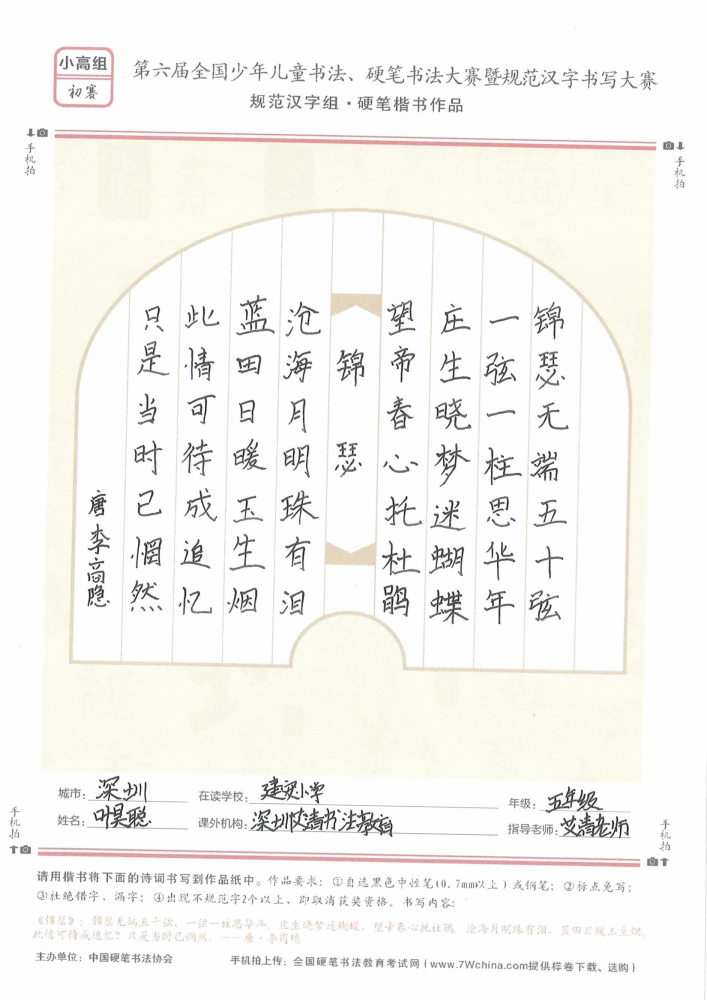 小高组
初赛
第六届全国少年儿童书法、硬笔书法大赛暨规范汉字书写大赛
规范汉字组·硬笔楷书作品
手机拍
手机拍
锦瑟无端五十弦
一弦一柱思华年
庄生晓梦迷蝴蝶
望帝春心托杜鹃
锦瑟
沧海月明珠有泪
蓝田日暖玉生烟
此情可待成追忆
只是当时已惘然
唐李商隐
城市：深圳
在读学校：建安小学
年级：五年级
姓名：叶昊聪
课外机构：深圳艾清书法教育
指导老师：艾清老师
手机拍
手机拍
请用楷书将下面的诗词书写到作品纸中。作品要求：①自选黑色中性笔(0.7mm以上)或钢笔；②标点免写；
③杜绝错字、漏字；④出现不规范字2个以上，即取消获奖资格。书写内容：
《锦瑟》：锦瑟无端五十弦，一弦一柱思华年。庄生晓梦迷蝴蝶，望帝春心托杜鹃。沧海月明珠有泪，蓝田日暖玉生烟。
此情可待成追忆？只是当时已惘然。——唐·李商隐
主办单位：中国硬笔书法协会
手机拍上传：全国硬笔书法教育考试网(www.7Wchina.com提供样卷下载、选购)